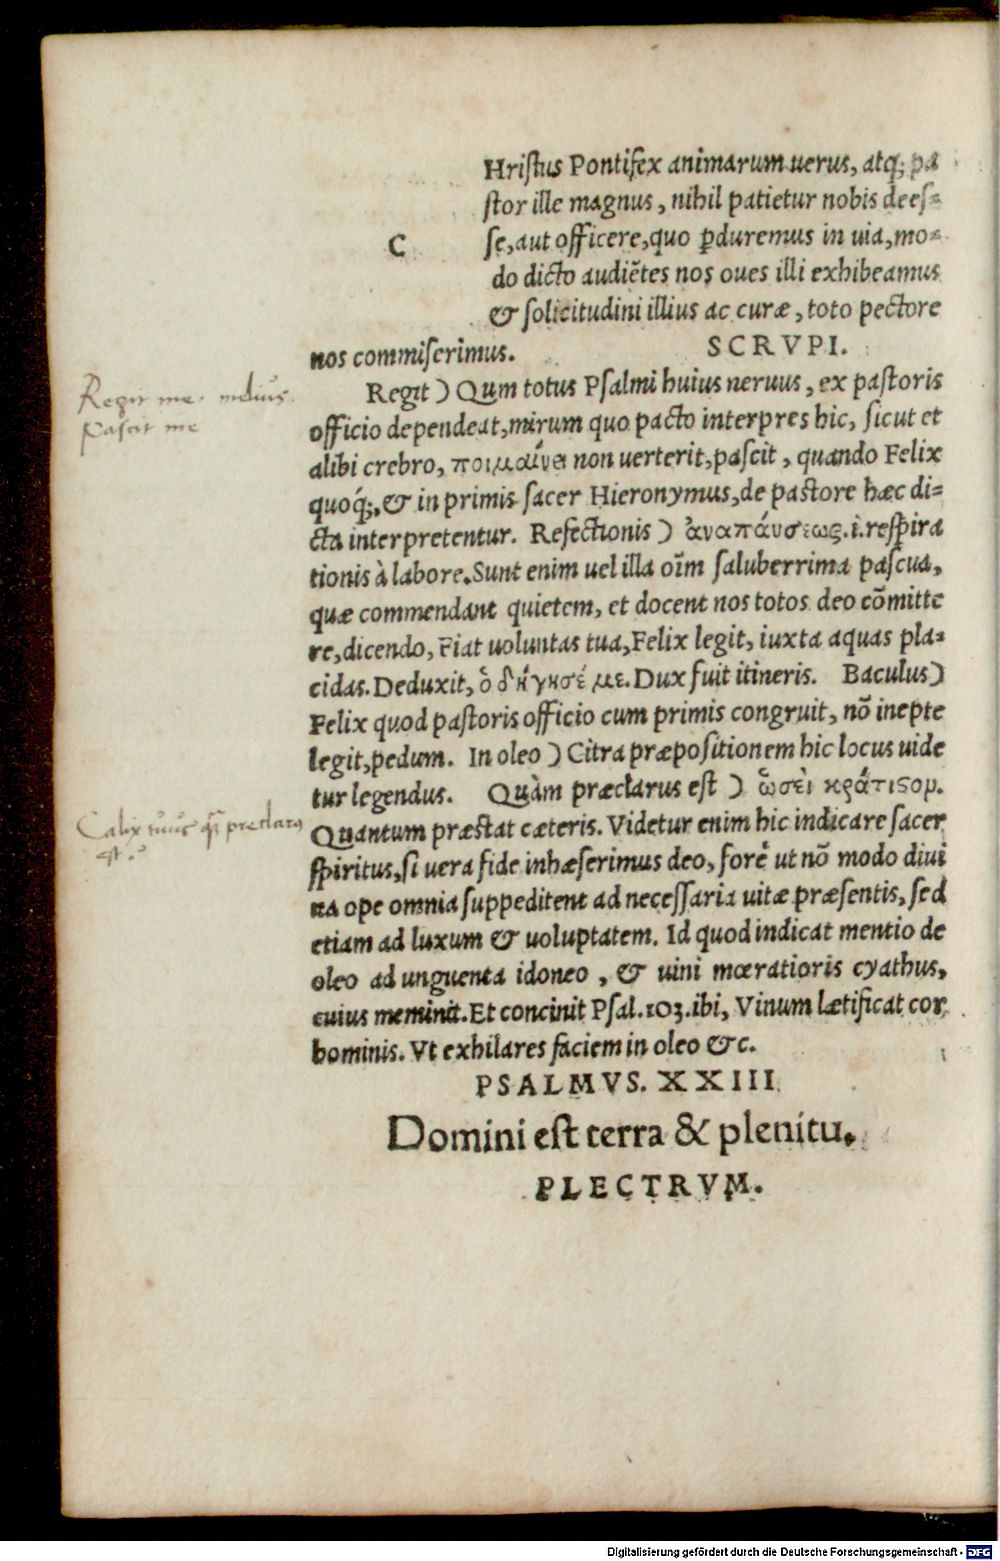 Hriſtus Pontifex animarum uerus, atq; pa
ſtor ille magnus, nihil patietur nobis deeſ-
C
ſe, aut officere, quo ꝑduremus in uia, mo-
do dicto audiẽtes nos oues illi exhibeamus
& ſolicitudini illius ac curæ, toto pectore
nos commiſerimus.
SCRVPI.
Regit me. melius
Regit ) Qum totus Pſalmi huius neruus, ex paſtoris
pascit me
officio dependeat, mirum quo pacto interpres hic, ſicut et
alibi crebro, ποιμαίνει non uerterit, paſcit, quando Felix
quoq́;, & in primis ſacer Hieronymus, de paſtore hæc di-
cta interpretentur. Refectionis ) ἀναπάυσεως. i. reſpira
tionis à labore. Sunt enim uel illa oĩm ſaluberrima paſcua,
quæ commendant quietem, et docent nos totos deo cõmitte
re, dicendo, Fiat uoluntas tua, Felix legit, iuxta aquas pla-
cidas. Deduxit, ὁδήγησέ με. Dux fuit itineris. Baculus )
Felix quod paſtoris officio cum primis congruit, nõ inepte
legit, pedum. In oleo ) Citra præpoſitionem hic locus uide
tur legendus. Quàm præclarus eſt ) ὡσεὶ κράτιςομ.
Calix tuus q̃ preclarus
est.
Quantum præſtat cæteris. Videtur enim hic indicare ſacer
ſpiritus, ſi uera fide inhæſerimus deo, fore ut nõ modo diui
na ope omnia ſuppeditent ad neceſſaria uitæ præſentis, ſed
etiam ad luxum & uoluptatem. Id quod indicat mentio de
oleo ad unguenta idoneo, & uini mœratioris cyathus,
cuius meminit. Et concinit Pſal. 103. ibi, Vinum lætificat cor
hominis. Vt exhilares faciem in oleo &c.
PSALMVS. XXIII
Domini eſt terra & plenitu.
PLECTRVM.
Digitalisierung gefördert durch die Deutsche Forschungsgemeinschaft - DFG